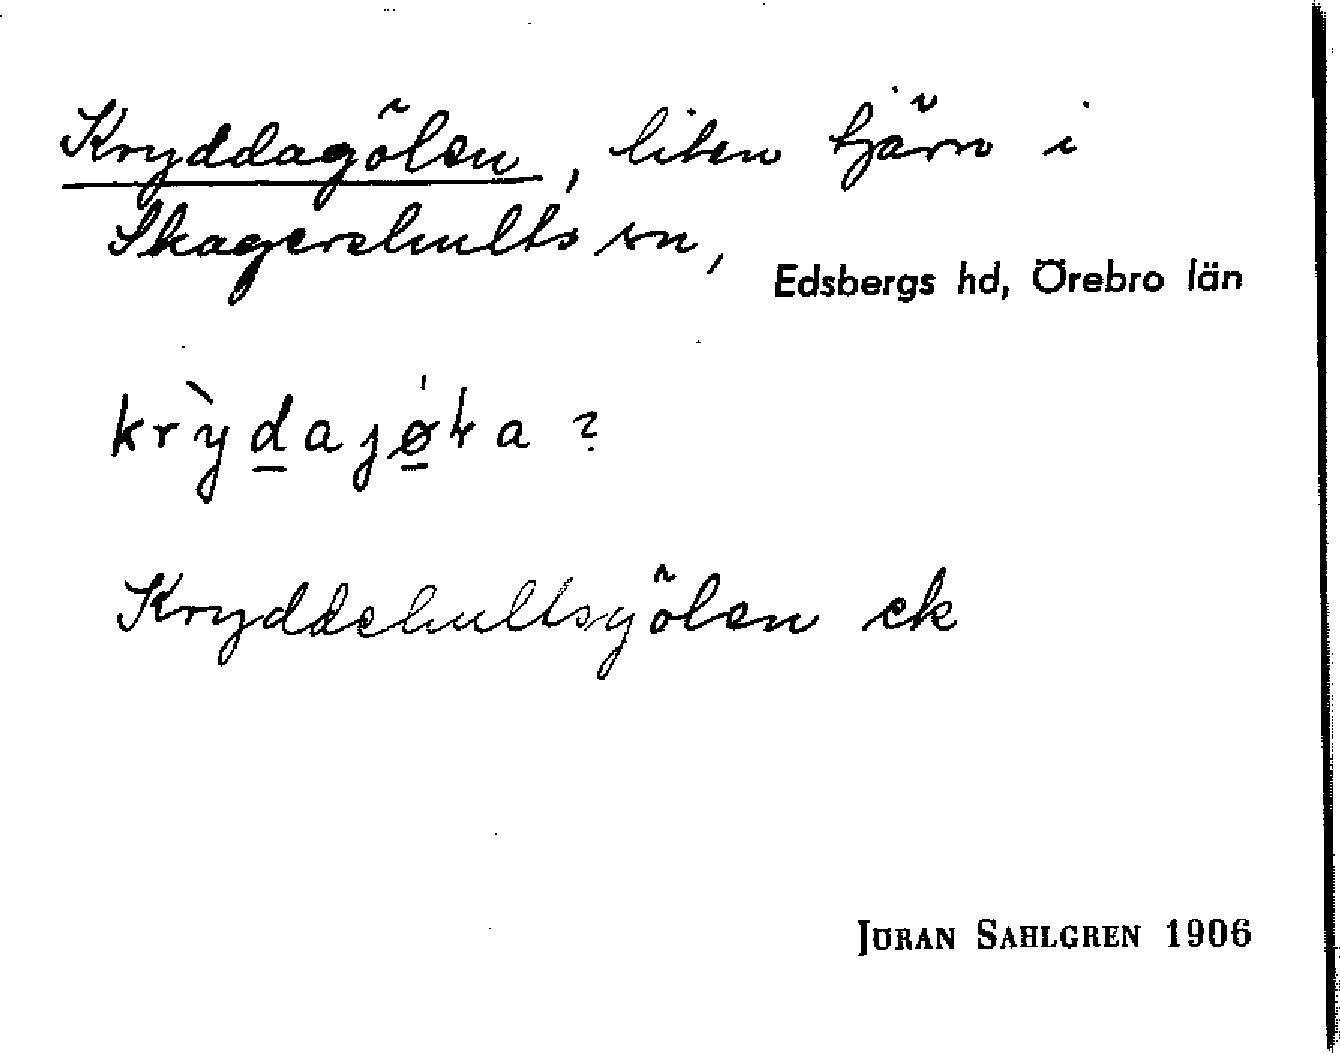 Kryddagölen, liten tjärn i
Skagershults sn,
Edsbergs hd, Örebro län
krỳdajøɫa ?
Kryddehultsgölen ek
JÖRAN SAHLGREN 1906